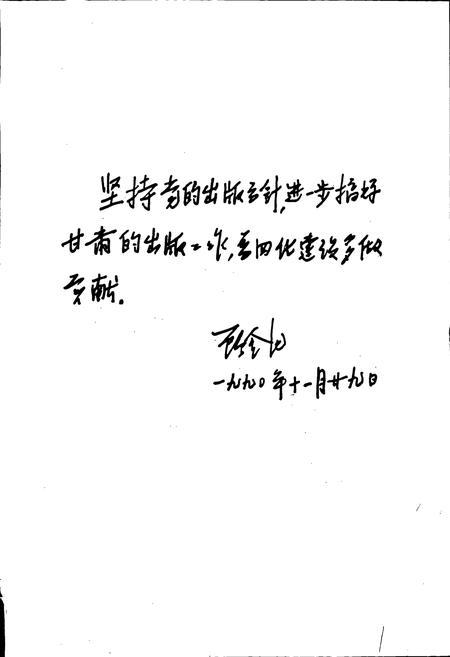 坚持党的出版方针,进一步搞好
甘肃的出版工作,为四化建设多做
贡献。
顾金池
一九九〇年十一月廿九日